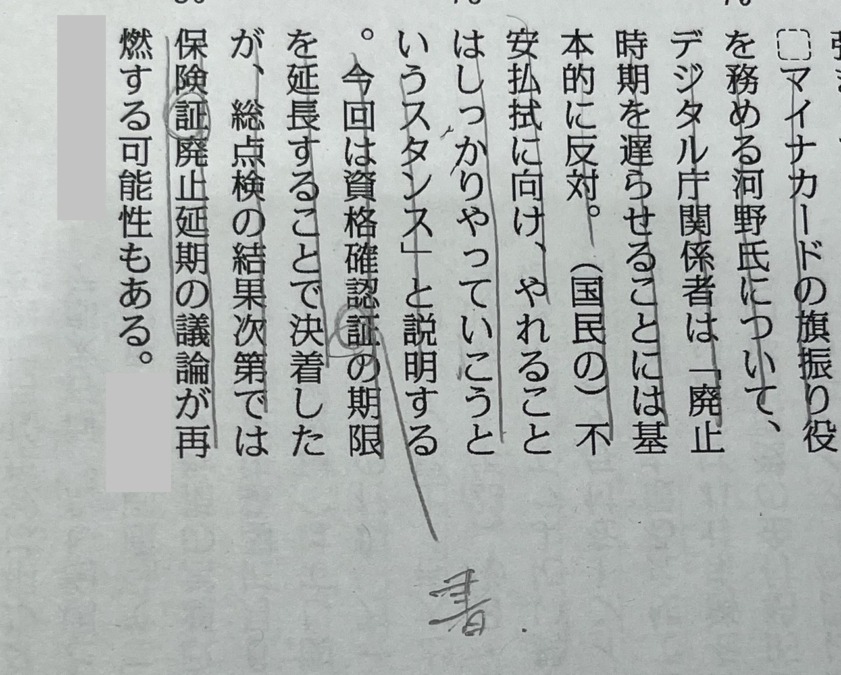 マイナカードの旗振り役
を務める河野氏について、
デジタル庁関係者は「廃止
時期を遅らせることには基
本的に反対。（国民の）不
安払拭に向け、やれること
はしっかりやっていこうと
いうスタンス」と説明する
。今回は資格確認証の期限
を延長することで決着した
が、総点検の結果次第では
保険証廃止延期の議論が再
燃する可能性もある。
書